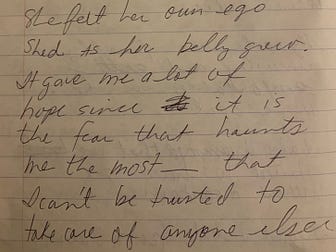 She felt her own ego
shed as her belly grew.
It gave me a lot of
hope since it is
the fear that haunts
me the most — that
I can't be trusted to
take care of anyone else